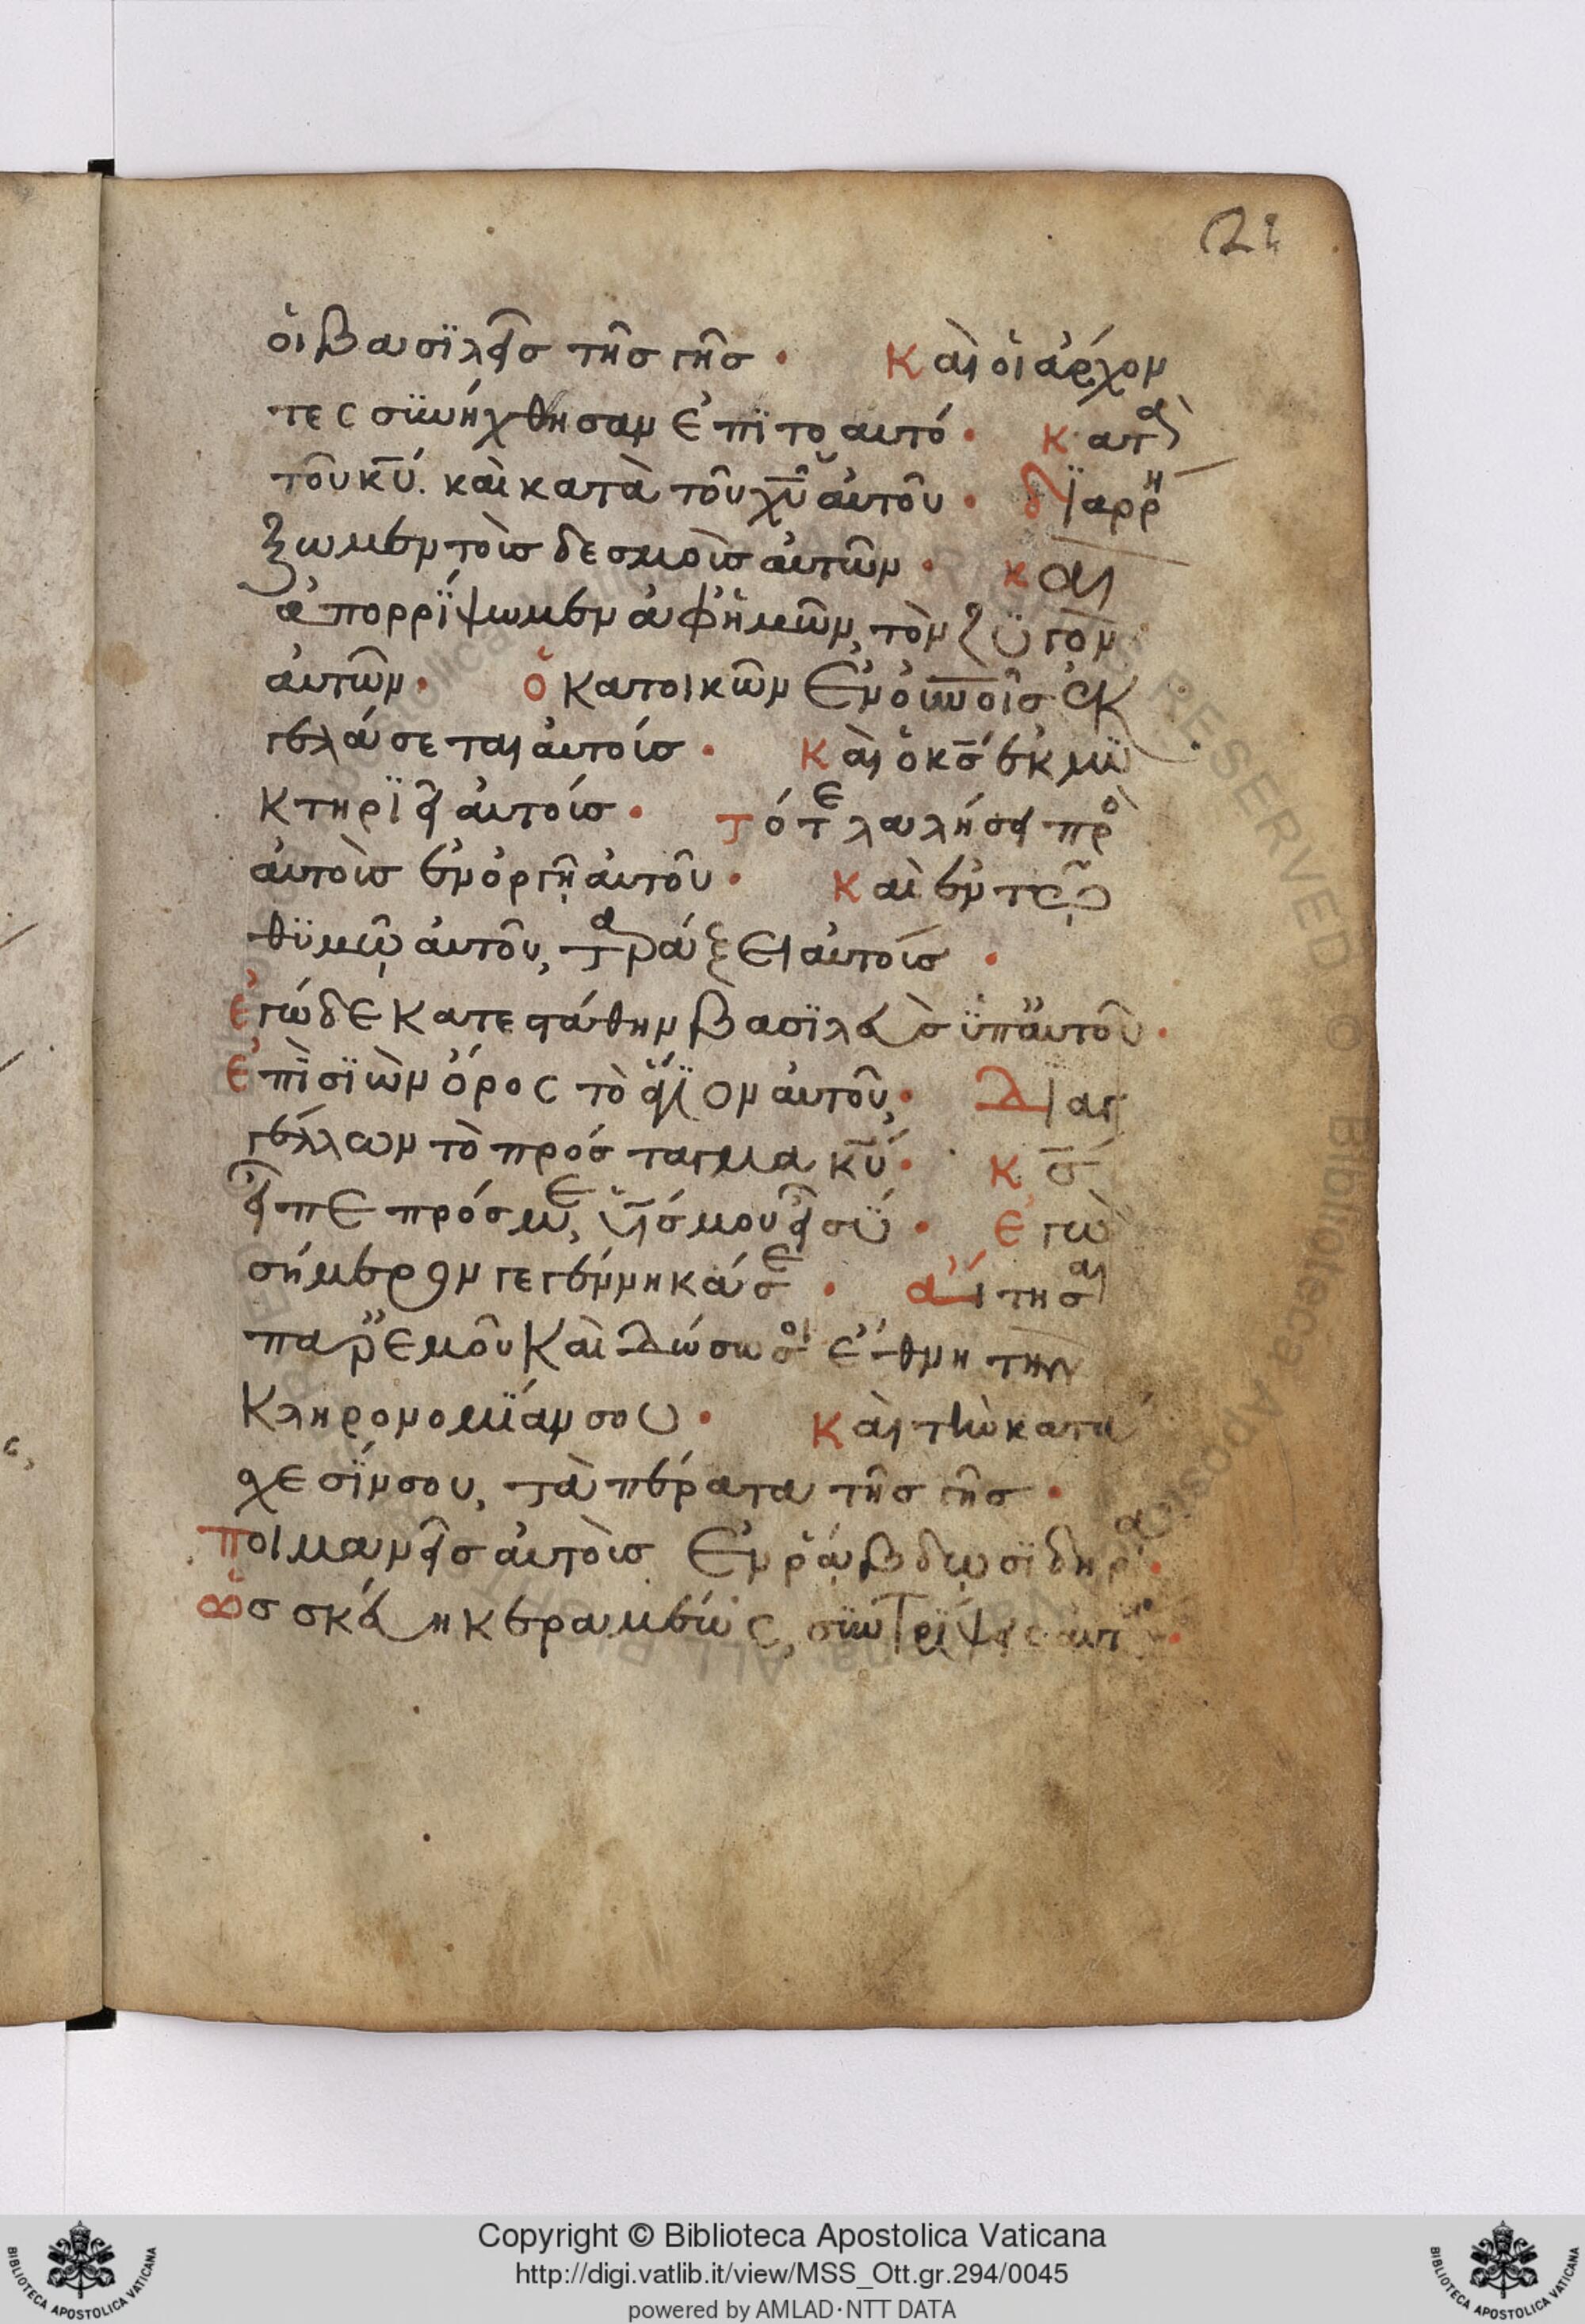 21
οἱ βασϊλεῖσ τῆσ γῆσ · Καὶ οἱ ἄρχον
τες σϋνήχθησαν ἐπϊ το αυτό · κατὰ
τοῦ κ̅υ̅. καὶ κατὰ τοῦ χ̅υ̅ αὐτοῦ · δϊαρρή
ξωμεν τοὺσ δεσμοὺσ αὐτῶν · και
ἀπορρίψωμεν ἀφ ἡμῶν, τὸν ζϋγὸν
αὐτῶν · ὁ κατοικῶν ἐν ὀυ̅ν̅οῖσ ἐκ
γελάσεται αὐτούσ · Καὶ ὁ κ̅σ̅ ἐκμϋ
κτηρϊεῖ αὐτούσ · τότε λαλήσει πρὸ
αὐτοὺσ ἐν ὀργῆ αὐτοῦ · Καὶ ἐν τῶ
θϋμῶ αὐτοῦ, ταράξει αὐτούσ ·
ἐγώ δε κατεστάθην βασϊλεὺσ ϋπ αὐτοῦ ·
ἐπὶ σϊὼν ὄρος τὸ ἅγϊον αὐτοῦ, · Διαγ
γέλλων τὸ πρόσταγμα κ̅υ̅ · κ̅σ̅
εἶπε πρόσ με, ϋ̅ς̅ μου εἶ σϋ · ἐγὼ
σήμερον γεγέννηκά σε · αἴτησαι
παρ ἐμοῦ Καὶ δώσω σοι ἔθνη την
Κληρονομϊάν σου · Καὶ τὴν κατά
χεσϊν σου, τὰ πέρατα τῆσ γῆσ ·
ποιμανεῖσ αὐτοὺσ ἐν ῥάβδω σϊδηρᾶ ·
ὡσ σκεύη κεραμέως, σϋντρϊψεις αυτ ·
Copyright © Biblioteca Apostolica Vaticana
http://digi.vatlib.it/view/MSS_Ott.gr.294/0045
powered by AMLAD·NTT DATA
BIBLIOTECA APOSTOLICA VATICANA
BIBLIOTECA APOSTOLICA VATICANA